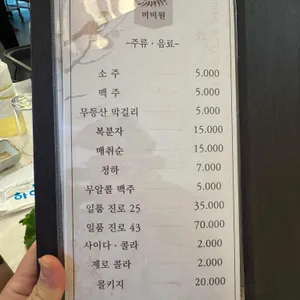 미미원
-주류 · 음료-
소 주 5.000
맥 주 5.000
무등산 막걸리 5.000
복분자 15.000
매취순 15.000
청하 7.000
무알콜 맥주 5.000
일품 진로 25 35.000
일품 진로 43 70.000
사이다 · 콜라 2.000
제로 콜라 2.000
콜키지 20.000